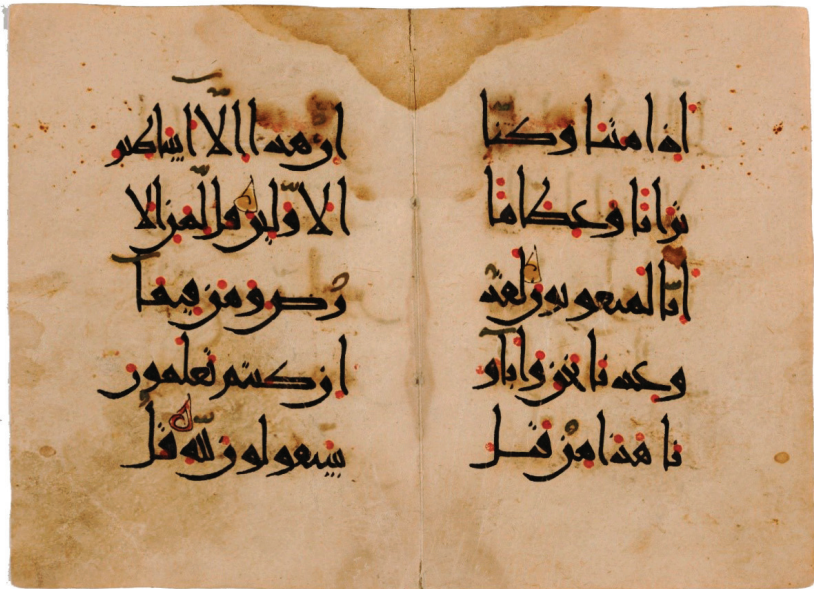 اذا متنا وكنا
ترابا وعظاما
انا لمبعوثون لقد
وعدنا نحن واباو
نا هذا من قبل
ان هذا الا اساطير
الاولين قل لمن الا
رض ومن فيها
ان كنتم تعلمون
سيقولون لله قل